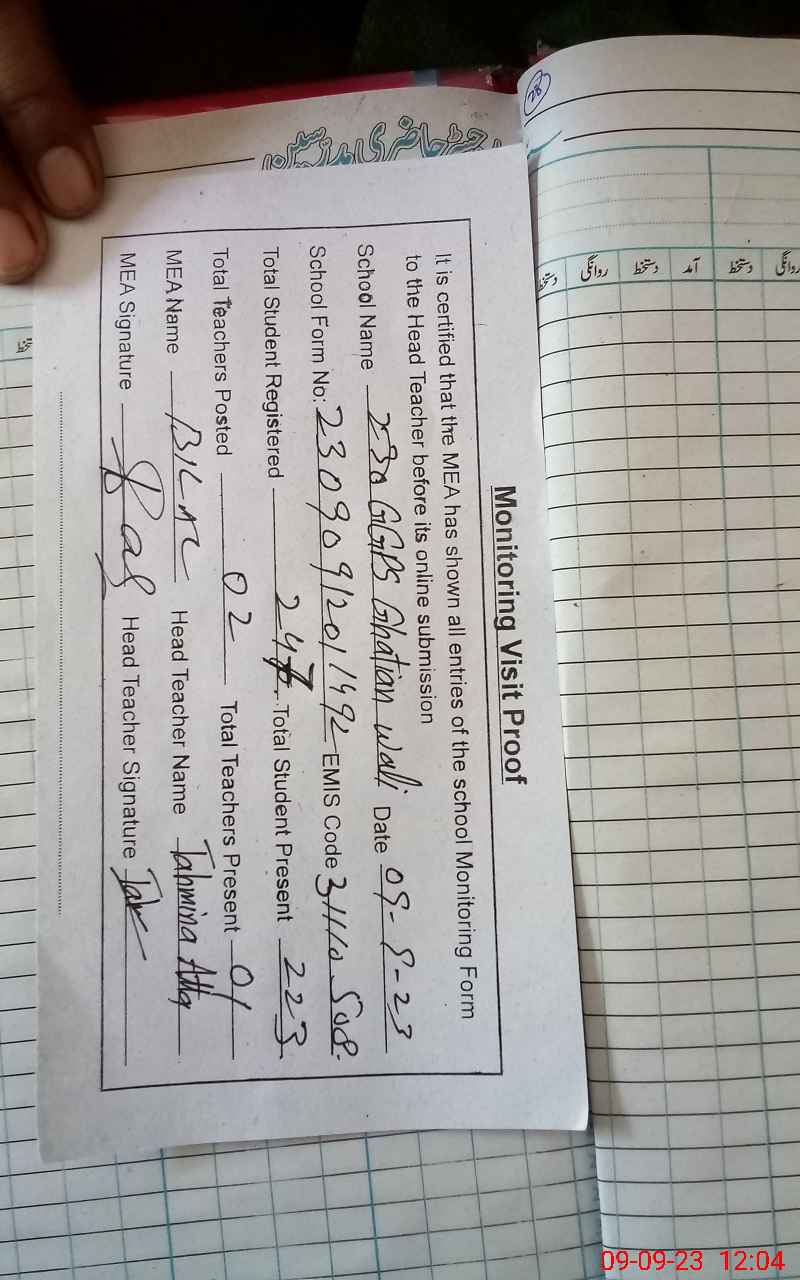 رجسٹر حاضری مدرسین
28
دستخط روانگی دستخط آمد دستخط روانگی
Monitoring Visit Proof
It is certified that the MEA has shown all entries of the school Monitoring Form
to the Head Teacher before its online submission
School Name 230 GGPS Ghatian Wali Date 09-9-23
School Form No: 2309091201149 EMIS Code 31110508
Total Student Registered 247 Total Student Present 223
Total Teachers Posted 02 Total Teachers Present 01
MEA Name Head Teacher Name Tahmina Atta
MEA Signature Head Teacher Signature
09-09-23 12:04